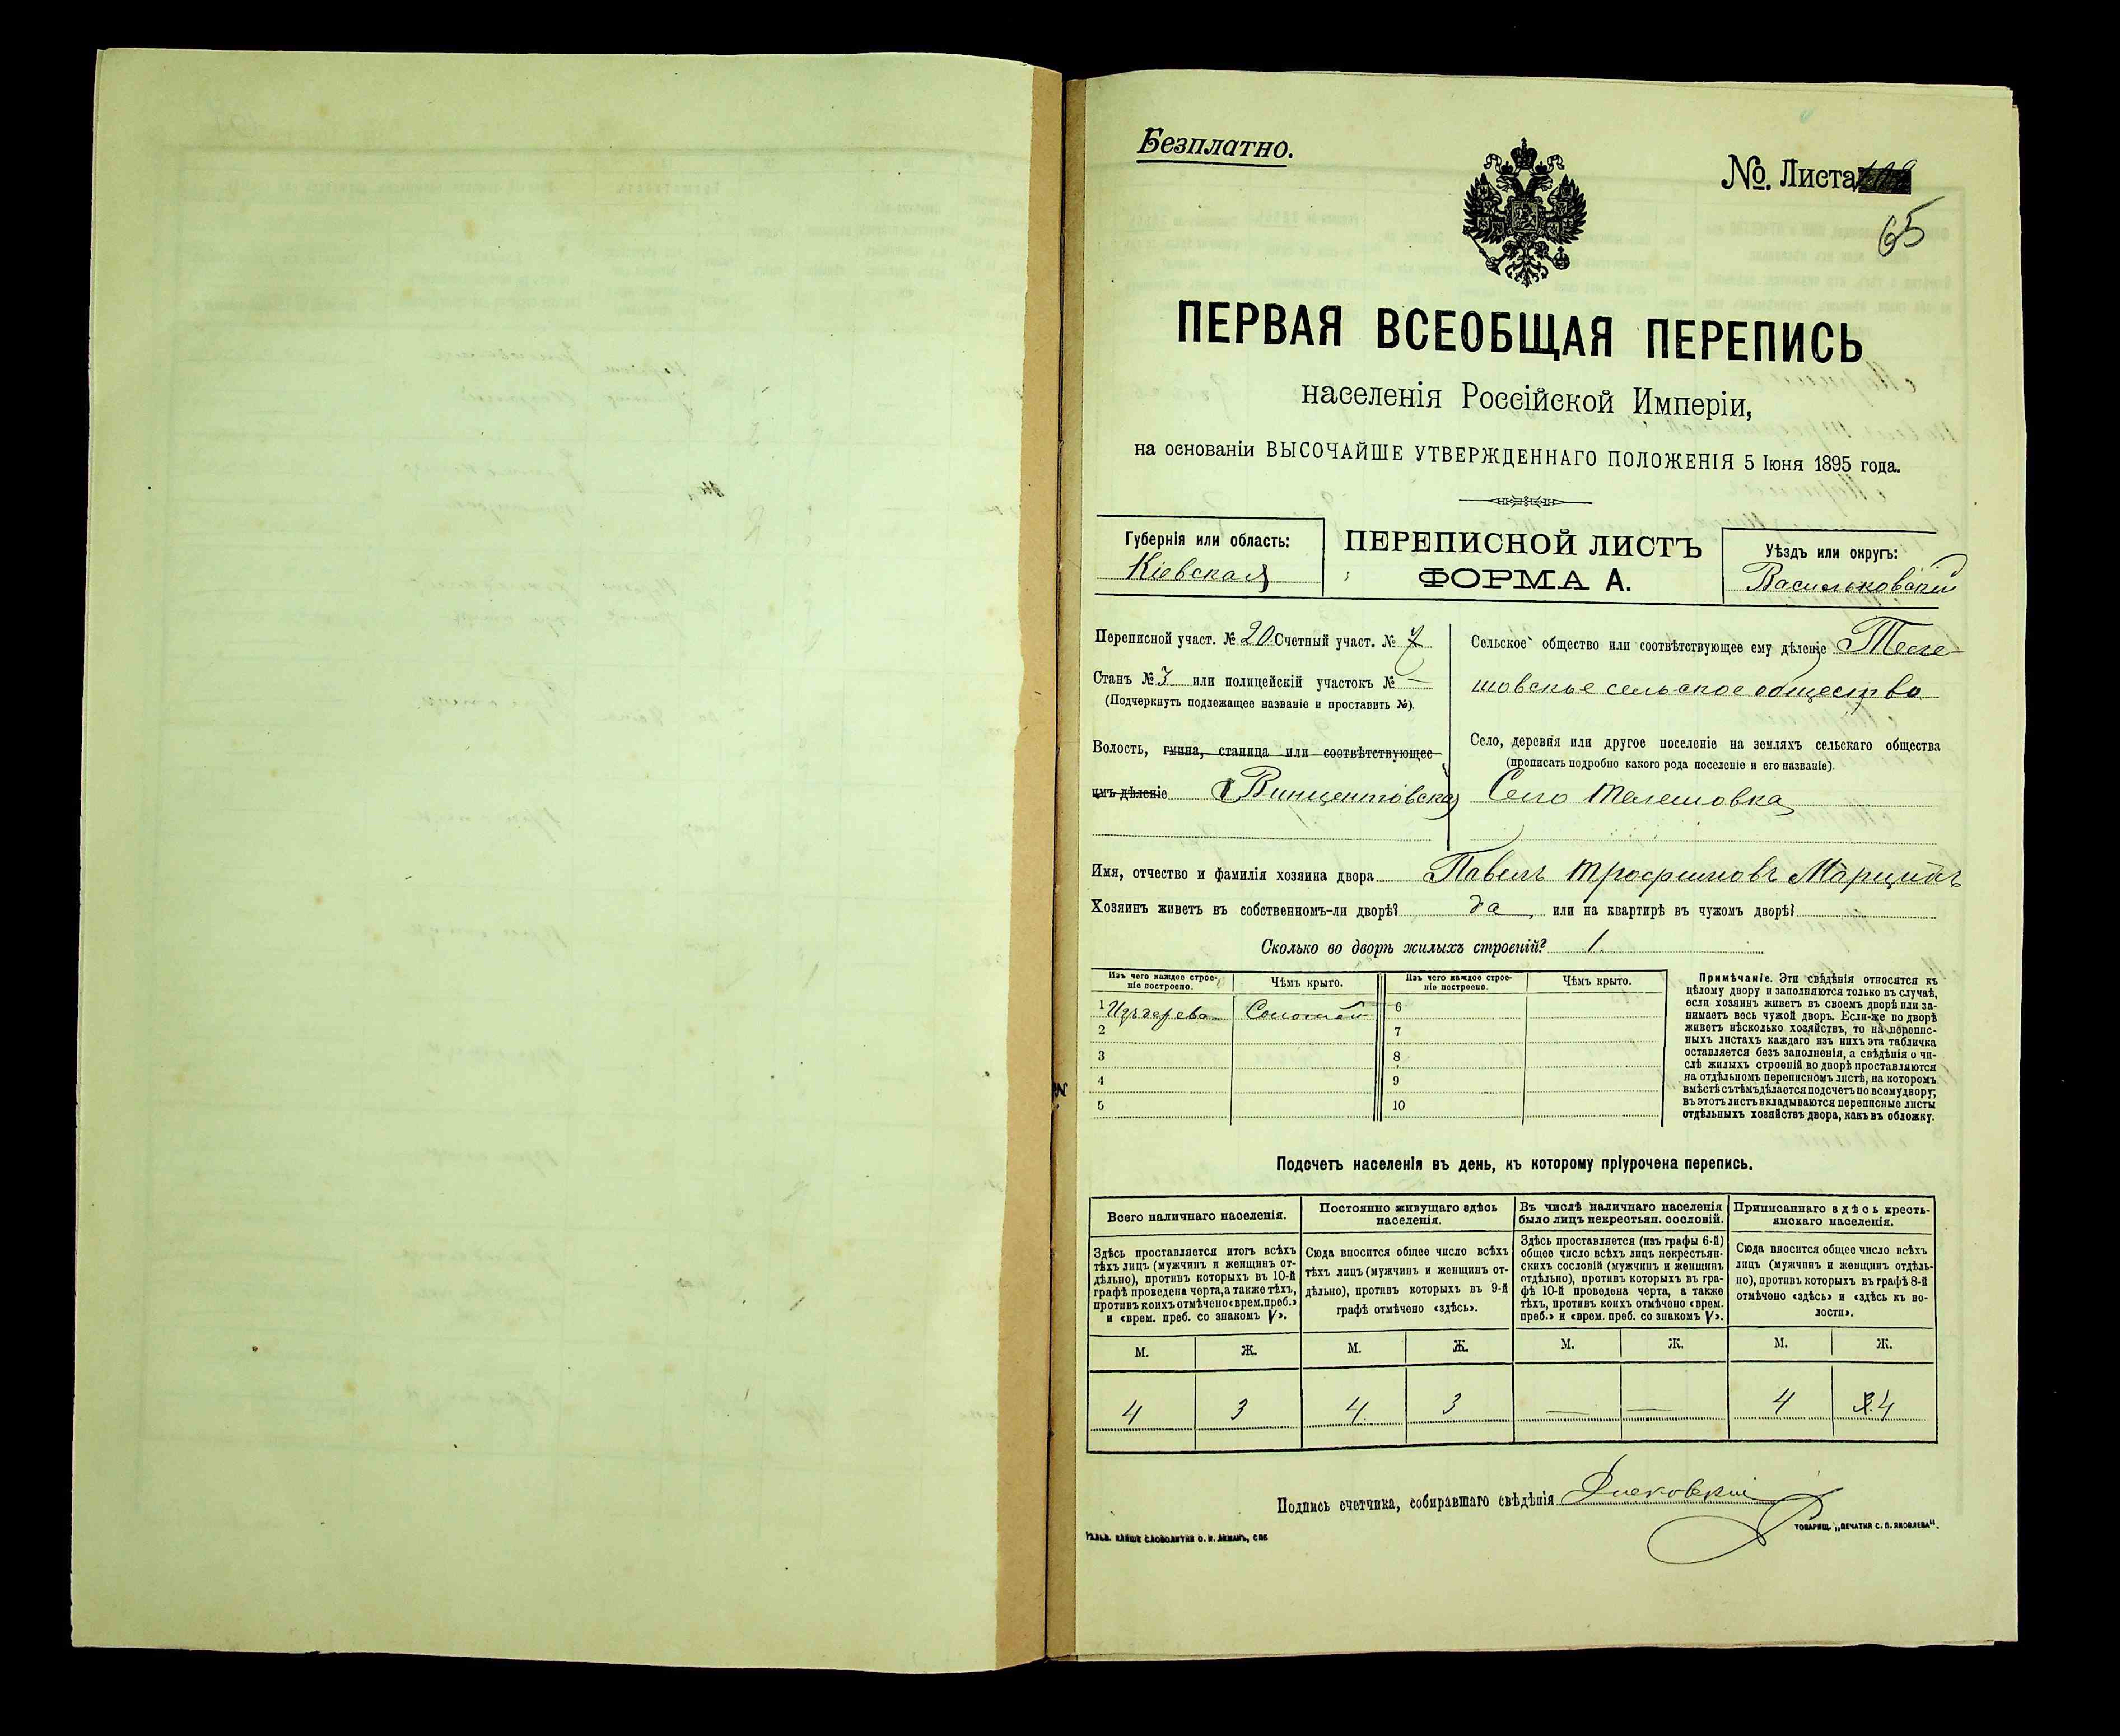 Безплатно.
№. Листа
65
ПЕРВАЯ ВСЕОБЩАЯ ПЕРЕПИСЬ
населенія Россійской Имперіи,
на основаніи ВЫСОЧАЙШЕ УТВЕРЖДЕННАГО ПОЛОЖЕНІЯ 5 Іюня 1895 года.
Губернія или область:
Кіевская
ПЕРЕПИСНОЙ ЛИСТЪ
ФОРМА А.
Уѣздъ или округъ:
Васильковскій
Переписной участ. № 20 Счетный участ. № 7
Станъ № 3 или полицейскій участокъ № —
(Подчеркнуть подлежащее названіе и проставить №).
Волость, гмина, станица или соотвѣтствующее
имъ дѣленіе Винцентовская
Сельское общество или соотвѣтствующее ему дѣленіе Теле-
шовское сельское общество
Село, деревня или другое поселеніе на земляхъ сельскаго общества
(прописать подробно какого рода поселеніе и его названіе).
Село Телешовка
Имя, отчество и фамилія хозяина двора Павелъ Трофимовъ
Хозяинъ живетъ въ собственномъ-ли дворѣ? да или на квартирѣ въ чужомъ дворѣ?
Сколько во дворѣ жилыхъ строеній? 1.
Изъ чего каждое строе-
ніе построено.
Чѣмъ крыто.
Изъ чего каждое строе-
ніе построено.
Чѣмъ крыто.
1 Изъ дерева Соломой 6
2 7
3 8
4 9
5 10
Примѣчаніе. Эти свѣдѣнія относятся къ
цѣлому двору и заполняются только въ случаѣ,
если хозяинъ живетъ въ своемъ дворѣ или за-
нимаетъ весь чужой дворъ. Если-же во дворѣ
живетъ нѣсколько хозяйствъ, то на перепис-
ныхъ листахъ каждаго изъ нихъ эта табличка
оставляется безъ заполненія, а свѣдѣнія о чи-
слѣ жилыхъ строеній во дворѣ проставляются
на отдѣльномъ переписномъ листѣ, на которомъ
вмѣстѣ съ тѣмъ дѣлается подсчетъ по всему двору;
въ этотъ листъ вкладываются переписные листы
отдѣльныхъ хозяйствъ двора, какъ въ обложку.
Подсчетъ населенія въ день, къ которому пріурочена перепись.
Всего наличнаго населенія.
Здѣсь проставляется итогъ всѣхъ
тѣхъ лицъ (мужчинъ и женщинъ от-
дѣльно), противъ которыхъ въ 10-й
графѣ проведена черта, а также тѣхъ,
противъ коихъ отмѣчено «врем. преб.»
и «врем. преб. со знакомъ V».
Постоянно живущаго здѣсь
населенія.
Сюда вносится общее число всѣхъ
тѣхъ лицъ (мужчинъ и женщинъ от-
дѣльно), противъ которыхъ въ 9-й
графѣ отмѣчено «здѣсь».
Въ числѣ наличнаго населенія
было лицъ некрестьян. сословій.
Здѣсь проставляется (изъ графы 6-й)
общее число всѣхъ лицъ некрестьян-
скихъ сословій (мужчинъ и женщинъ
отдѣльно), противъ которыхъ въ гра-
фѣ 10-й проведена черта, а также
тѣхъ, противъ коихъ отмѣчено «врем.
преб.» и «врем. преб. со знакомъ V».
Приписаннаго здѣсь кресть-
янскаго населенія.
Сюда вносится общее число всѣхъ
лицъ (мужчинъ и женщинъ отдѣль-
но), противъ которыхъ въ графѣ 8-й
отмѣчено «здѣсь» и «здѣсь къ во-
лости».
М. Ж. М. Ж. М. Ж. М. Ж.
4 3 4 3 — — 4 4
Подпись счетчика, собиравшаго свѣдѣнія
ТОВАРИЩ. „ПЕЧАТНЯ С. П. ЯКОВЛЕВА“.